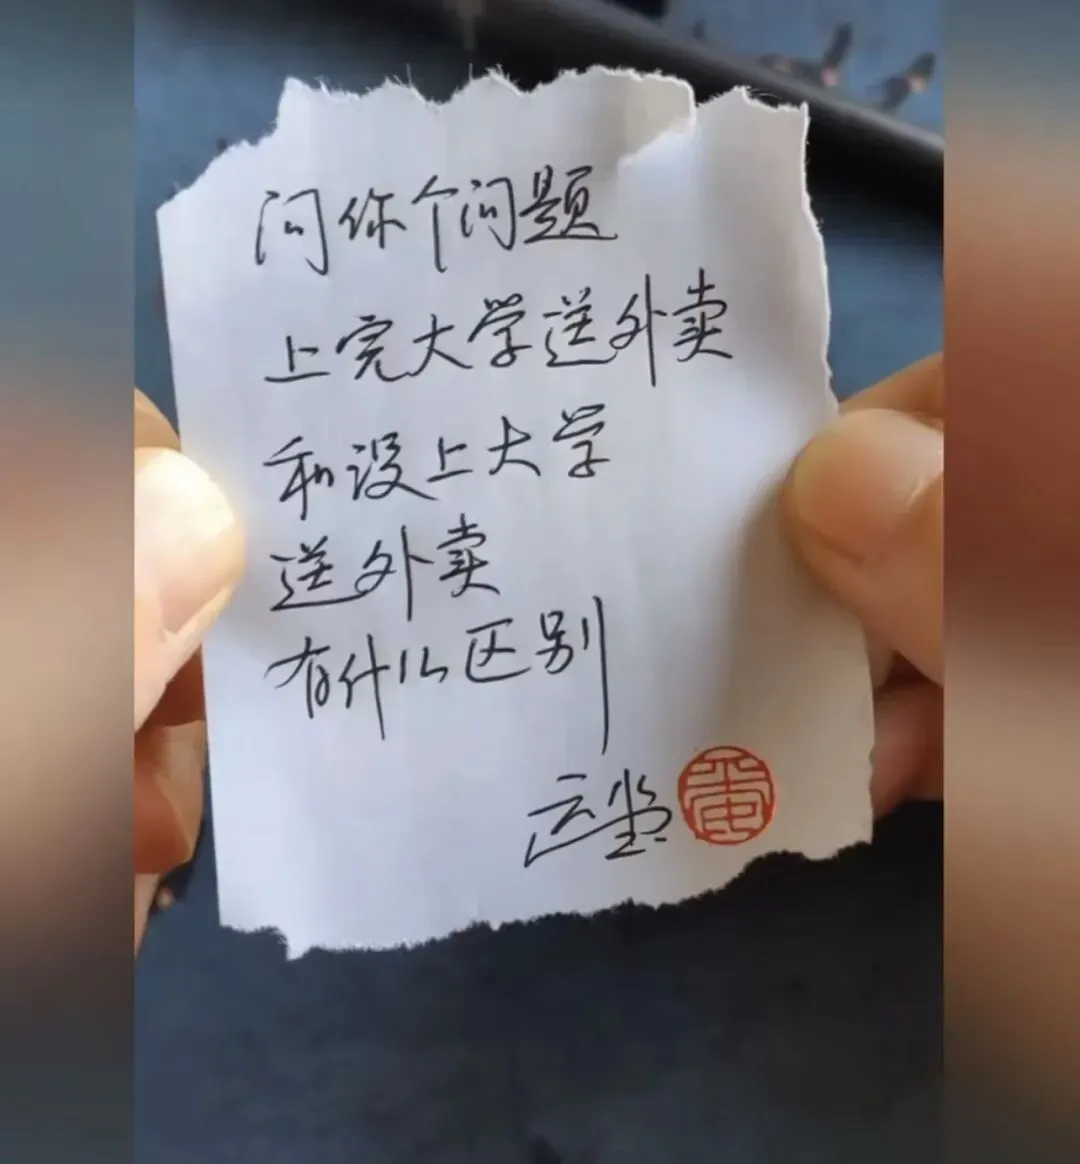 问你个问题
上完大学送外卖
和没上大学
送外卖
有什么区别